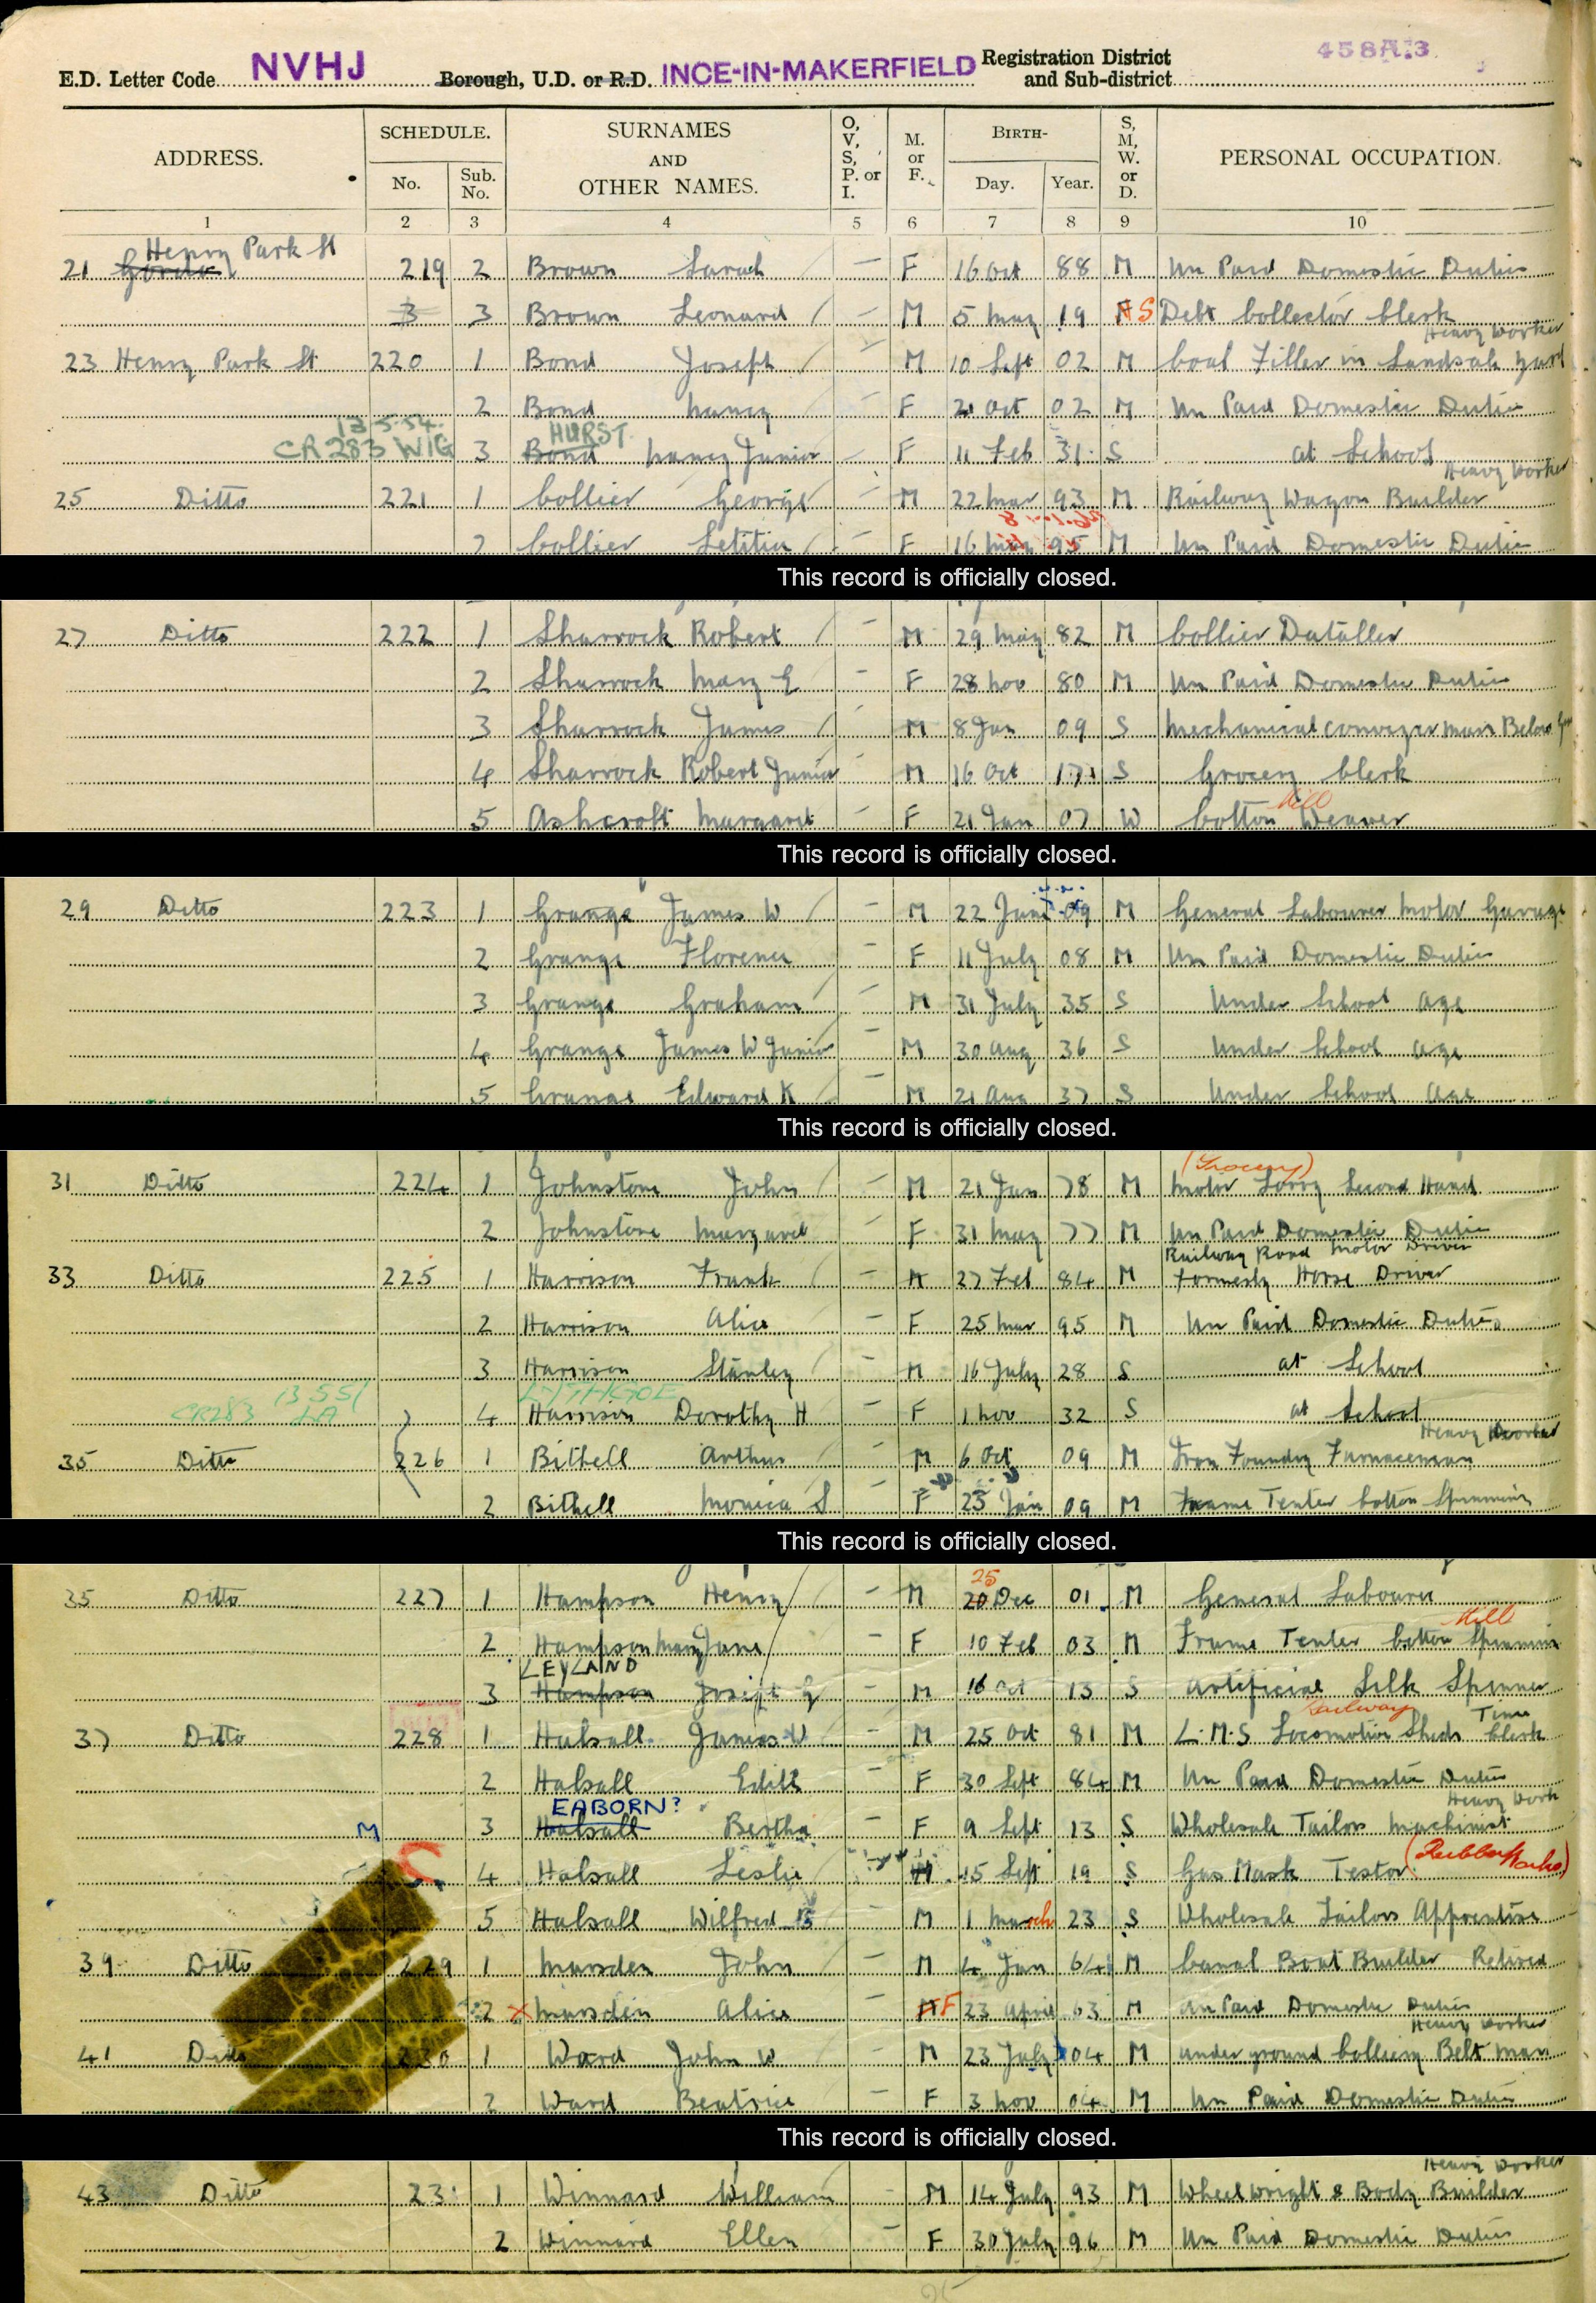 458A 3
E.D. Letter Code NVHJ Borough, U.D. or R.D. INCE-IN-MAKERFIELD Registration District and Sub-district
ADDRESS. SCHEDULE. SURNAMES AND OTHER NAMES. O, V, S, P. or I. M. or F. BIRTH- S, M, W. or D. PERSONAL OCCUPATION.
No. Sub. No. Day. Year.
1 2 3 4 5 6 7 8 9 10
Henry Park St
21 Gordon 219 2 Brown Sarah — F 16 Oct 88 M Un Paid Domestic Duties
3 3 Brown Leonard — M 5 May 19 S Debt Collector Clerk
Heavy Worker
23 Henry Park St 220 1 Bond Joseph — M 10 Sept 02 M Coal Filler in Landsale Yard
2 Bond Nancy — F 21 Oct 02 M Un Paid Domestic Duties
13.5.54. HURST
CR 283 WIG 3 Bond Nancy Junior — F 11 Feb 31 S at School
Heavy Worker
25 Ditto 221 1 Collier George — M 22 Mar 93 M Railway Wagon Builder
2 Collier Letitia — F 16 May 95 M Un Paid Domestic Duties
This record is officially closed.
27 Ditto 222 1 Sharrock Robert — M 29 May 82 M Collier Dataller
2 Sharrock Mary E — F 28 Nov 80 M Un Paid Domestic Duties
3 Sharrock James M 8 Jan 09 S Mechanical Conveyer Man Below
4 Sharrock Robert Junior — M 16 Oct 17 S Grocery Clerk
Mill
5 Ashcroft Margaret — F 21 Jan 07 W Cotton Weaver
This record is officially closed.
29 Ditto 223 1 Grange James W — M 22 June 09 M General Labourer Motor Garage
2 Grange Florence — F 11 July 08 M Un Paid Domestic Duties
3 Grange Graham — M 31 July 35 S Under School Age
4 Grange James W Junior — M 30 Aug 36 S Under School Age
5 Grange Edward K — M 21 Aug 37 S Under School Age
This record is officially closed.
(Grocery)
31 Ditto 224 1 Johnstone John — M 21 Jan 78 M Motor Lorry Second Hand
2 Johnstone Margaret — F 31 May 77 M Un Paid Domestic Duties
Railway Road Motor Driver
33 Ditto 225 1 Harrison Frank — M 27 Feb 84 M Formerly Horse Driver
2 Harrison Alice — F 25 Mar 95 M Un Paid Domestic Duties
3 Harrison Stanley — M 16 July 28 S at School
13 5 51 LYTHGOE
CR283 LA 4 Harrison Dorothy H — F 1 Nov 32 S at School
Heavy Worker
35 Ditto 226 1 Bithell Arthur — M 6 Oct 09 M Iron Foundry Furnaceman
2 Bithell Monica S — F 25 Jan 09 M Frame Tenter Cotton Spinning
This record is officially closed.
25
35 Ditto 227 1 Hampson Henry — M 20 Dec 01 M General Labourer
Mill
2 Hampson Mary Jane — F 10 Feb 03 M Frame Tenter Cotton Spinning
LEYLAND
3 Hampson Joseph G — M 16 Oct 13 S Artificial Silk Spinner
Railway Time
37 Ditto 228 1 Halsall James W — M 25 Oct 81 M L.M.S Locomotive Sheds Clerk
2 Halsall Edith — F 30 Sept 84 M Un Paid Domestic Duties
EABORN? Heavy Work
M 3 Halsall Bertha — F 9 Sept 13 S Wholesale Tailors Machinist
C 4 Halsall Leslie M 15 Sept 19 S Gas Mask Testor (Rubber Works)
5 Halsall Wilfred B — M 1 March 23 S Wholesale Tailors Apprentice
39 Ditto 229 1 Marsden John — M 4 Jan 64 M Canal Boat Builder Retired
2 X Marsden Alice — F 23 April 63 M Un Paid Domestic Duties
Heavy Worker
41 Ditto 230 1 Ward John W — M 23 July 04 M Under ground Colliery Belt Man
2 Ward Beatrice — F 3 Nov 04 M Un Paid Domestic Duties
This record is officially closed.
Heavy Worker
43 Ditto 231 1 Winnard William — M 14 July 93 M Wheelwright & Body Builder
2 Winnard Ellen — F 30 July 96 M Un Paid Domestic Duties